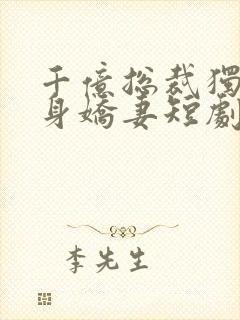 千億总裁獨
身嬌妻短劇
李先生